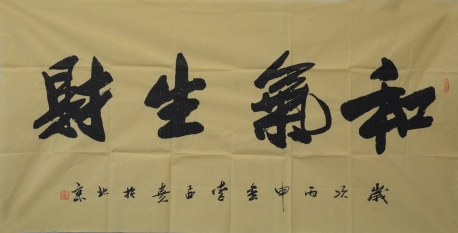 和氣生財
歲次丙申李於北京